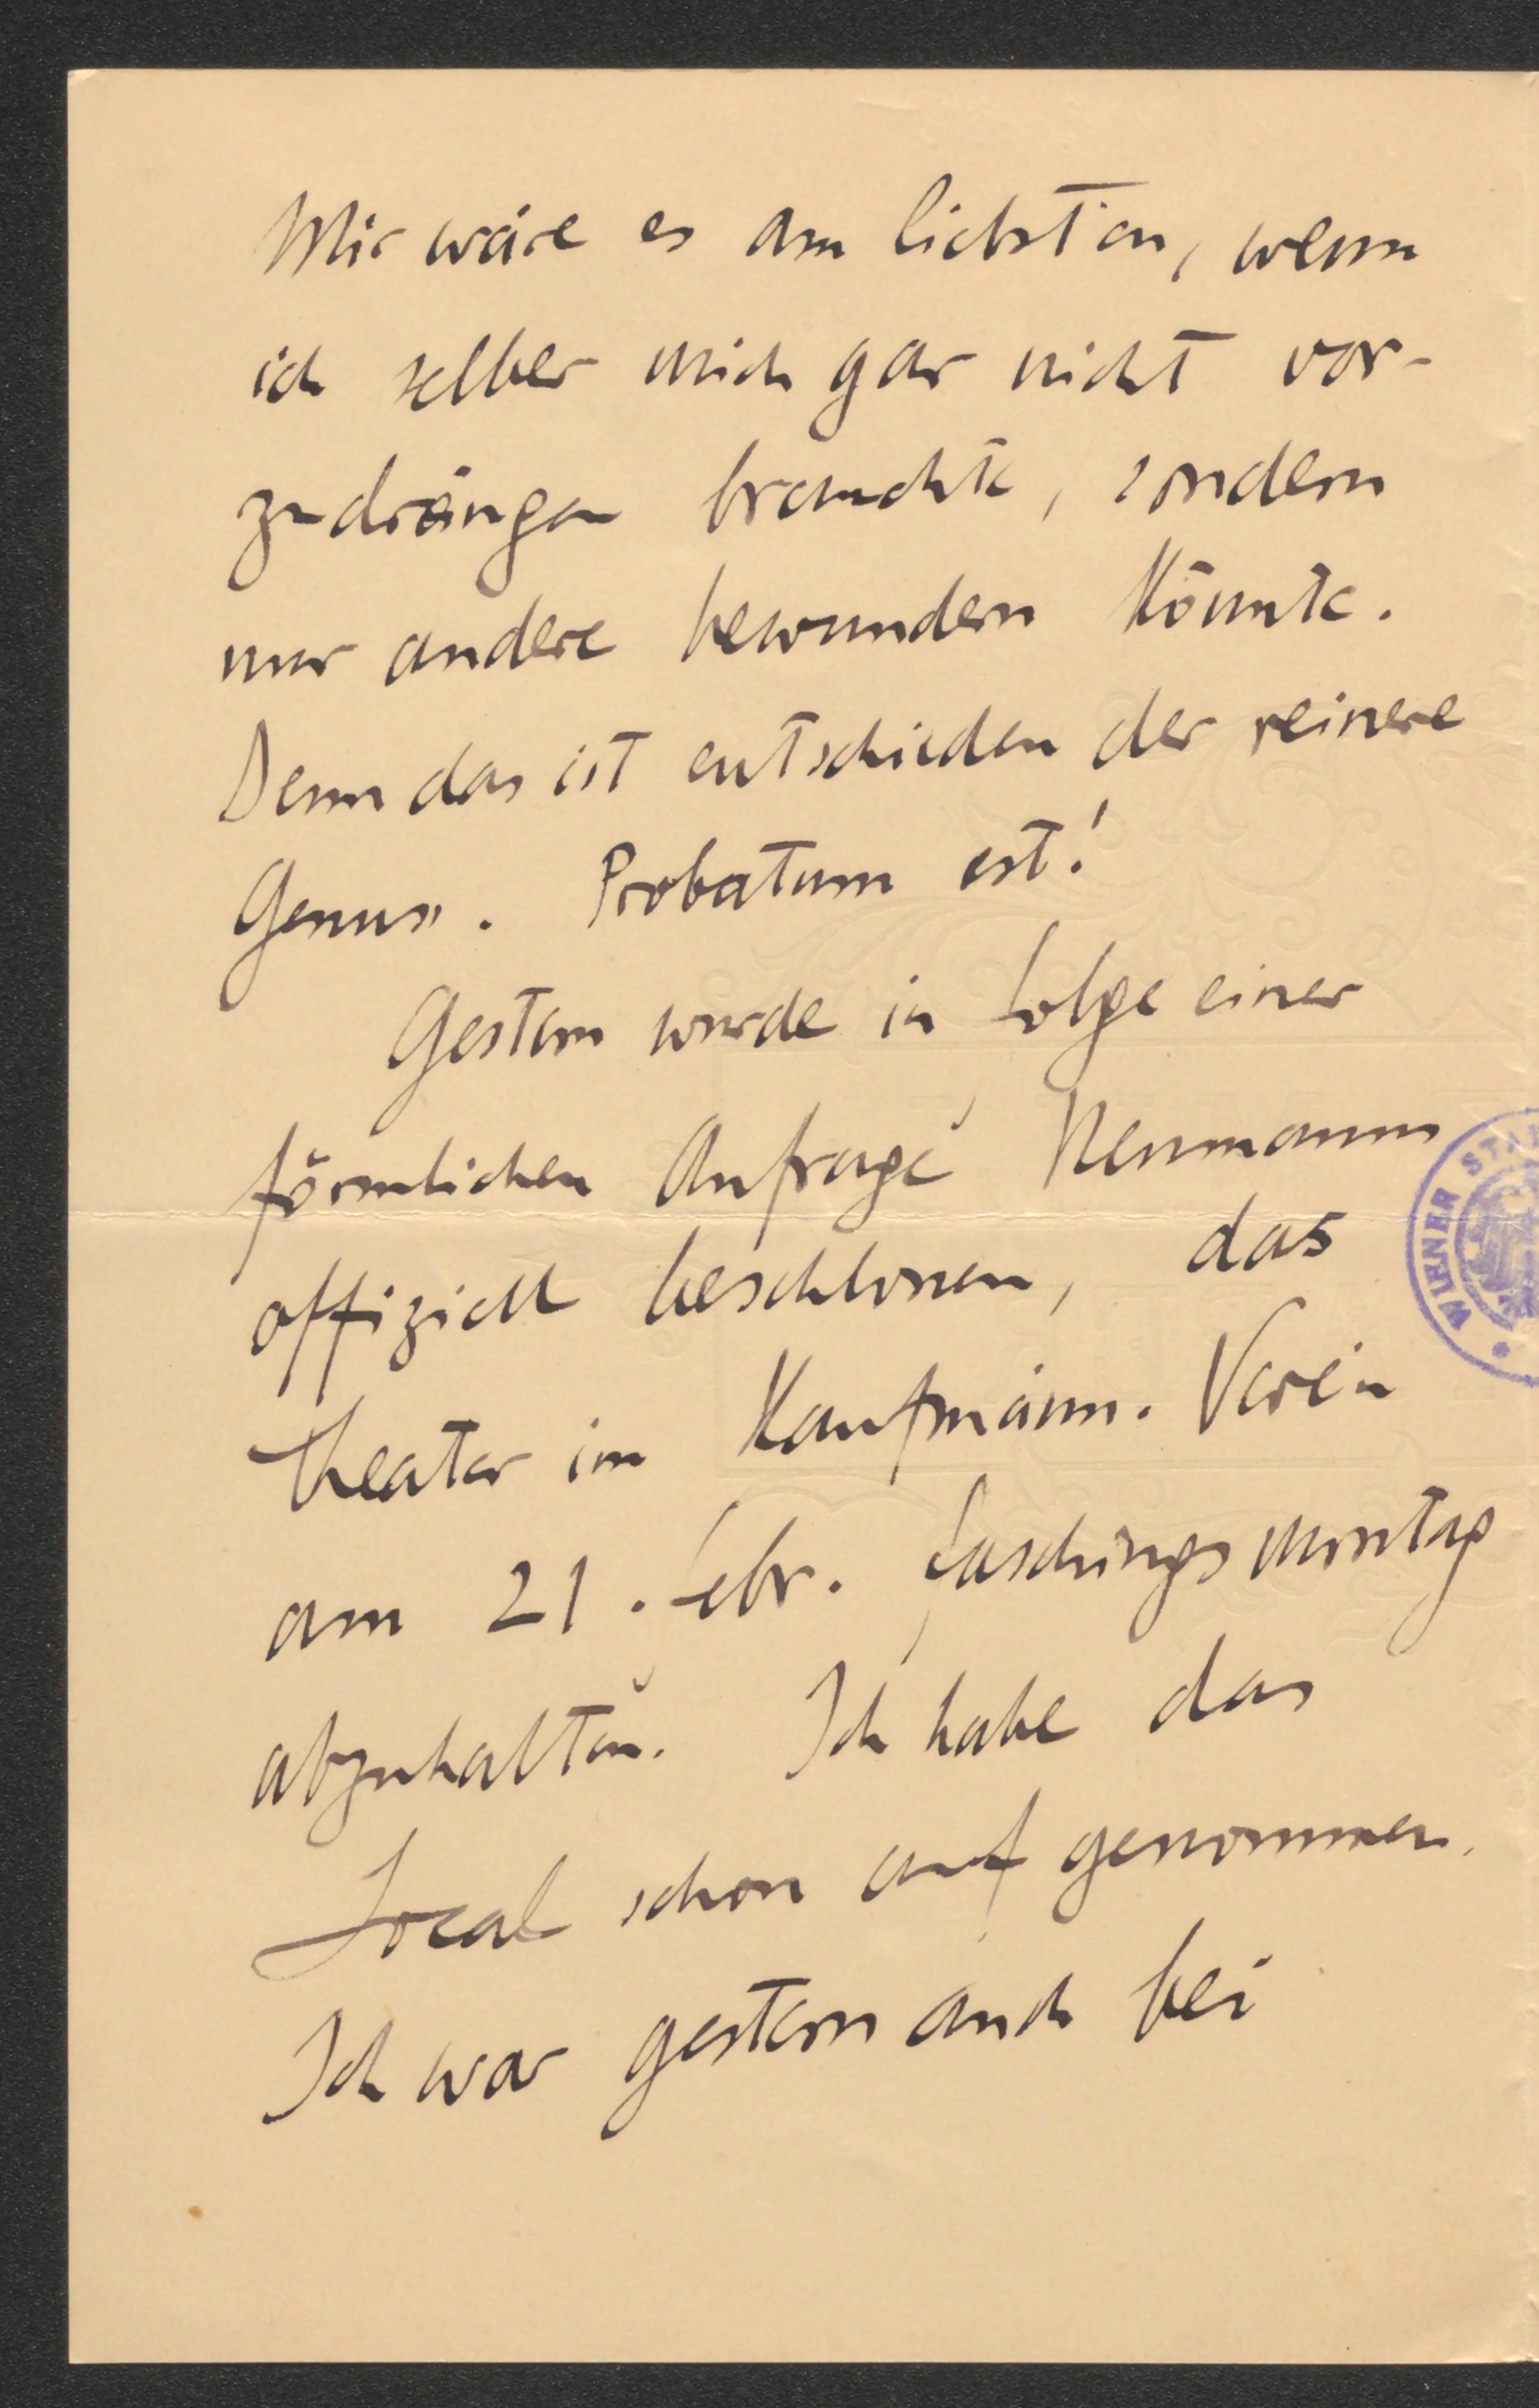 Mir wäre es am liebsten, wenn
ich selber mich gar nicht vor-
zudrängen brauchte, sondern
nur andere bewundern könnte.
Denn das ist entschieden der reinere
Genuss. Probatum est!
Gestern wurde in Folge einer
förmlichen Anfrage Neumanns
offiziell beschlossen, das
Theater im Kaufmänn. Verein
am 21. Febr. Faschingsmontag
abzuhalten. Ich habe das
Local schon aufgenommen.
Ich war gestern auch bei
WIENER STA